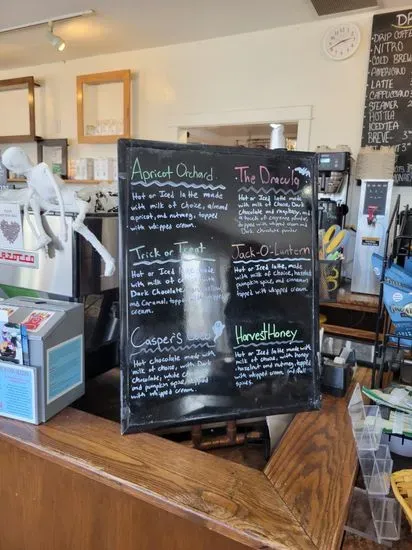 Apricot Orchard
Hot or Iced latte made
with milk of choice, almond
apricot, and nutmeg, topped
with whipped cream.
The Dracula
Hot or Iced latte, made
with milk of choice, Dark
Chocolate and raspberry, and
topped with whipped cream and
Dark chocolate powder.
Trick or Treat
Hot or Iced latte made
with milk of choice,
Dark Chocolate,
and Caramel, topped
cream.
Jack-O'-Lantern
Hot or Iced latte, made
with milk of choice, hazelnut
pumpkin spice, and cinnamon
topped with whipped cream.
Casper's
Hot Chocolate made with
milk of choice, with Dark
Chocolate, white
and pumpkin spice, topped
with whipped cream.
Harvest Honey
Hot or Iced latte, made with
milk of choice, with honey
hazelnut and nutmeg, topped
with whipped cream and fall
spices.
DRIP COFFEE
NITRO
COLD BREW
AMERICANO
LATTE
CAPPUCCINO
STEAMER
HOT TEA
ICED TEA
BREVE